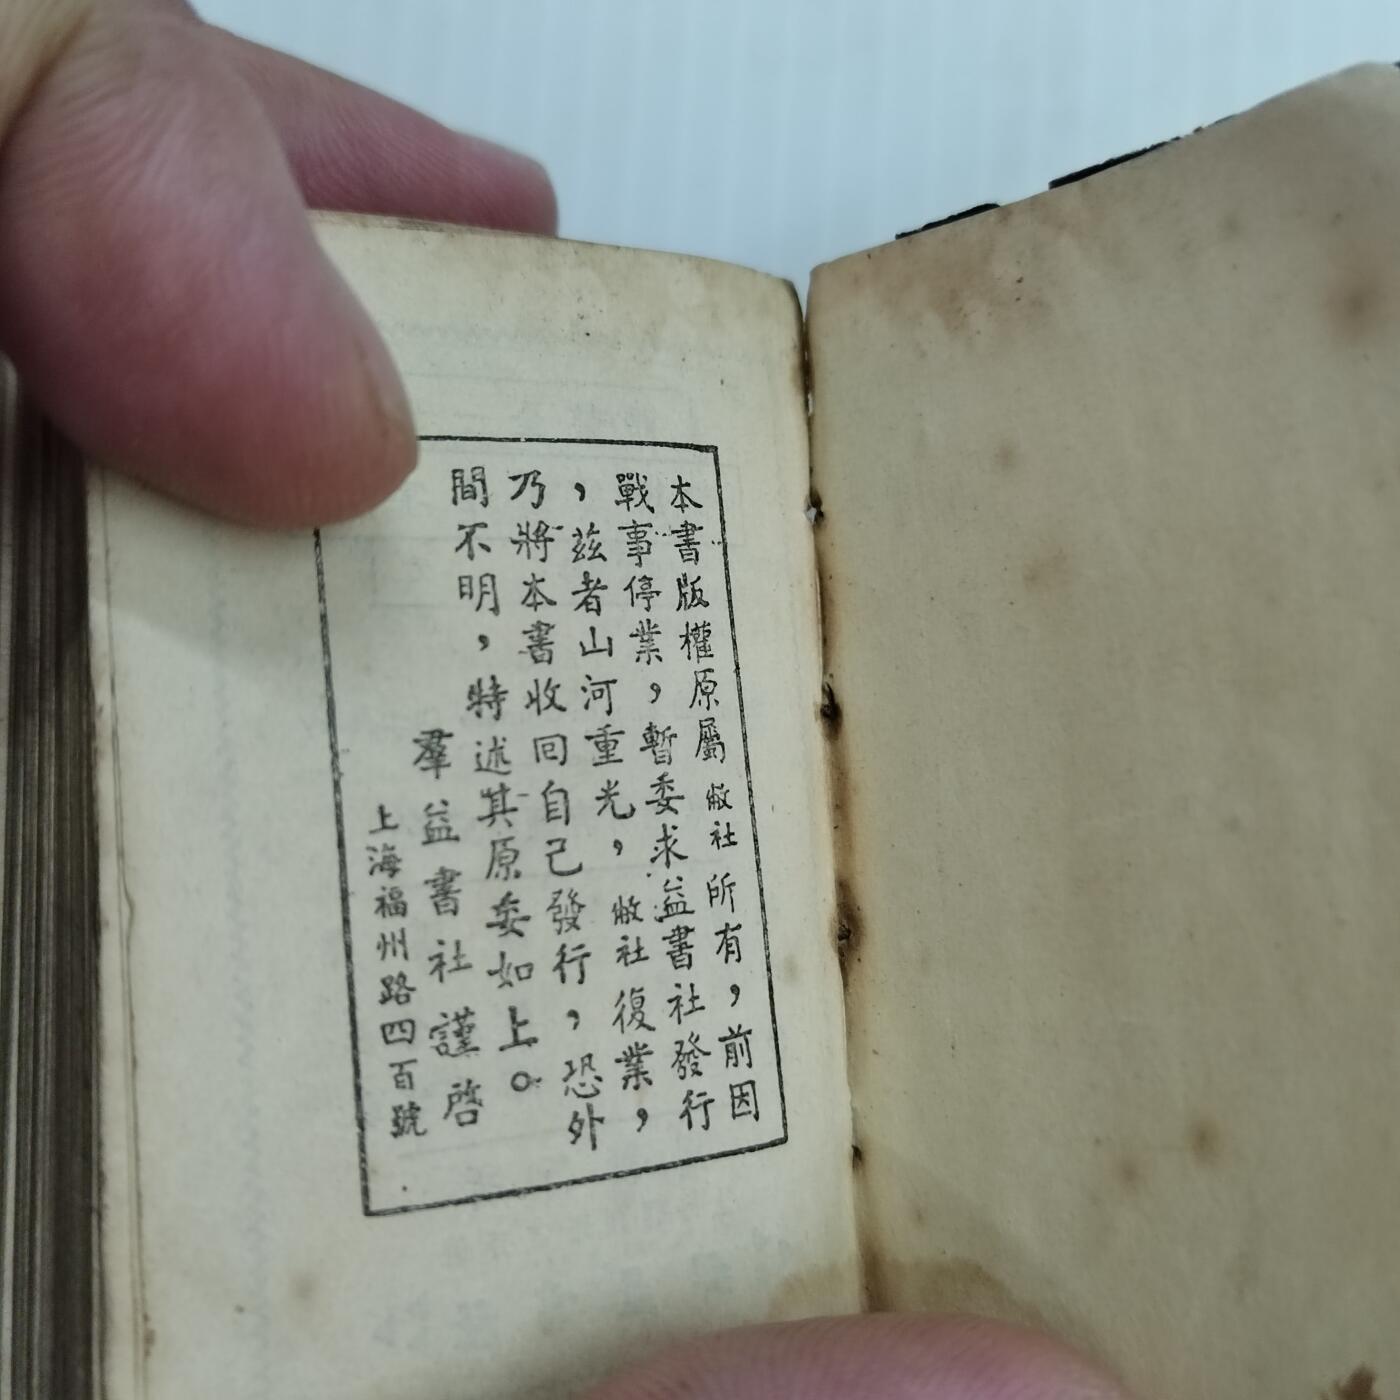 本書版權原屬敝社所有，前因
戰事停業，暫委求益書社發行
，茲者山河重光，敝社復業，
乃將本書收回自己發行，恐外
間不明，特述其原委如上。
羣益書社謹啓
上海福州路四百號